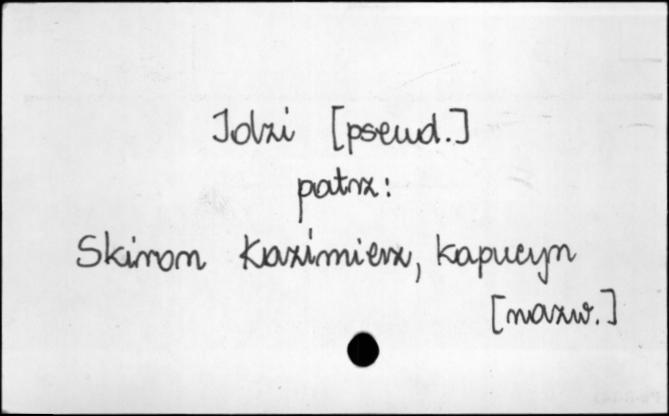 Idzi [pseud.]
patrz:
Skiron Kazimierz, kapucyn
[nazw.]